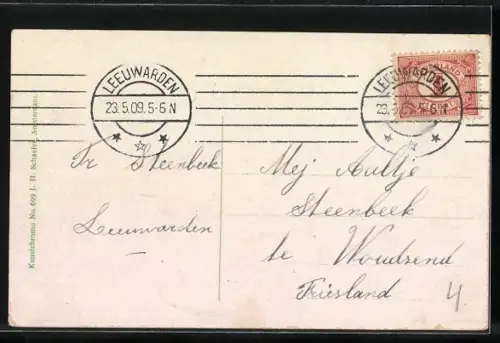 LEEUWARDEN
23.5.09.5-6 N
LEEUWARDEN
5-6 N
Kunstchromo No. 699 J. H. Schaefer, Amsterdam.
Steenbeek
Leeuwarden
Mej
Steenbeek
te Woudsend
Friesland
4